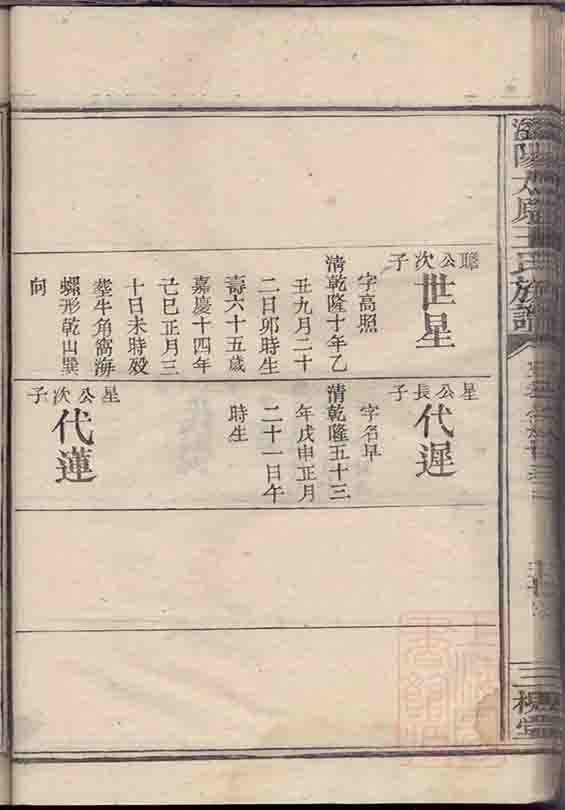 陽太原王氏族譜
三槐堂
聰公次子
世星
字高照
清乾隆十年乙
丑九月二十
二日卯時生
壽六十五歲
嘉慶十四年
己巳正月三
十日未時歿
塟牛角窩海
螺形乾山巽
向
星公長子
代遲
字名早
清乾隆五十三
年戊申正月
二十一日午
時生
星公次子
代蓮